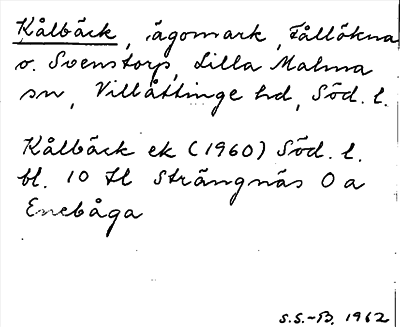 Kålbäck, ägomark, Fållökna
o. Svenstorp, Lilla Malma
sn, Villåttinge hd, Söd. l.
Kålbäck ek (1960) Söd. l.
bl. 10 Il Strängnäs O a
Enebåga
S.S.-B. 1962